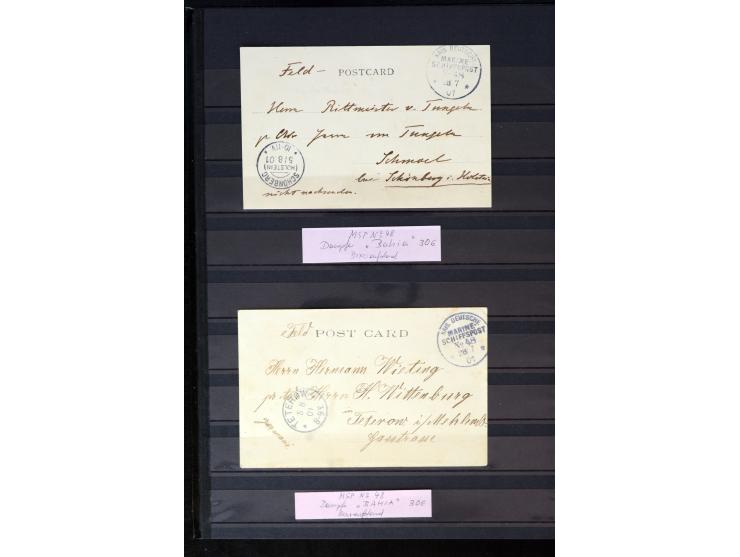 Feld – POSTCARD
KAIS. DEUTSCHE
MARINE-
SCHIFFSPOST
No 48
28 7
01
Herrn Rittmeister v. Tungeln
pr. Adr. Frau von Tungeln
Schmoel
bei Schönberg i. Holstein
nicht nachsenden.
SCHÖNBERG
(HOLSTEIN)
5/8.01
MSP No 48
Dampfer „Bahia" 30€
Feld
POST CARD
KAIS. DEUTSCHE
MARINE-
SCHIFFSPOST
No 48
28 7
01
Herrn Hermann Wieting
pr. Adr. Herrn H. Wittenburg
Teterow i/Mcklenb.
Germany
TETEROW
5 8
01
MSP No 48
Dampfer „BAHIA" 30€